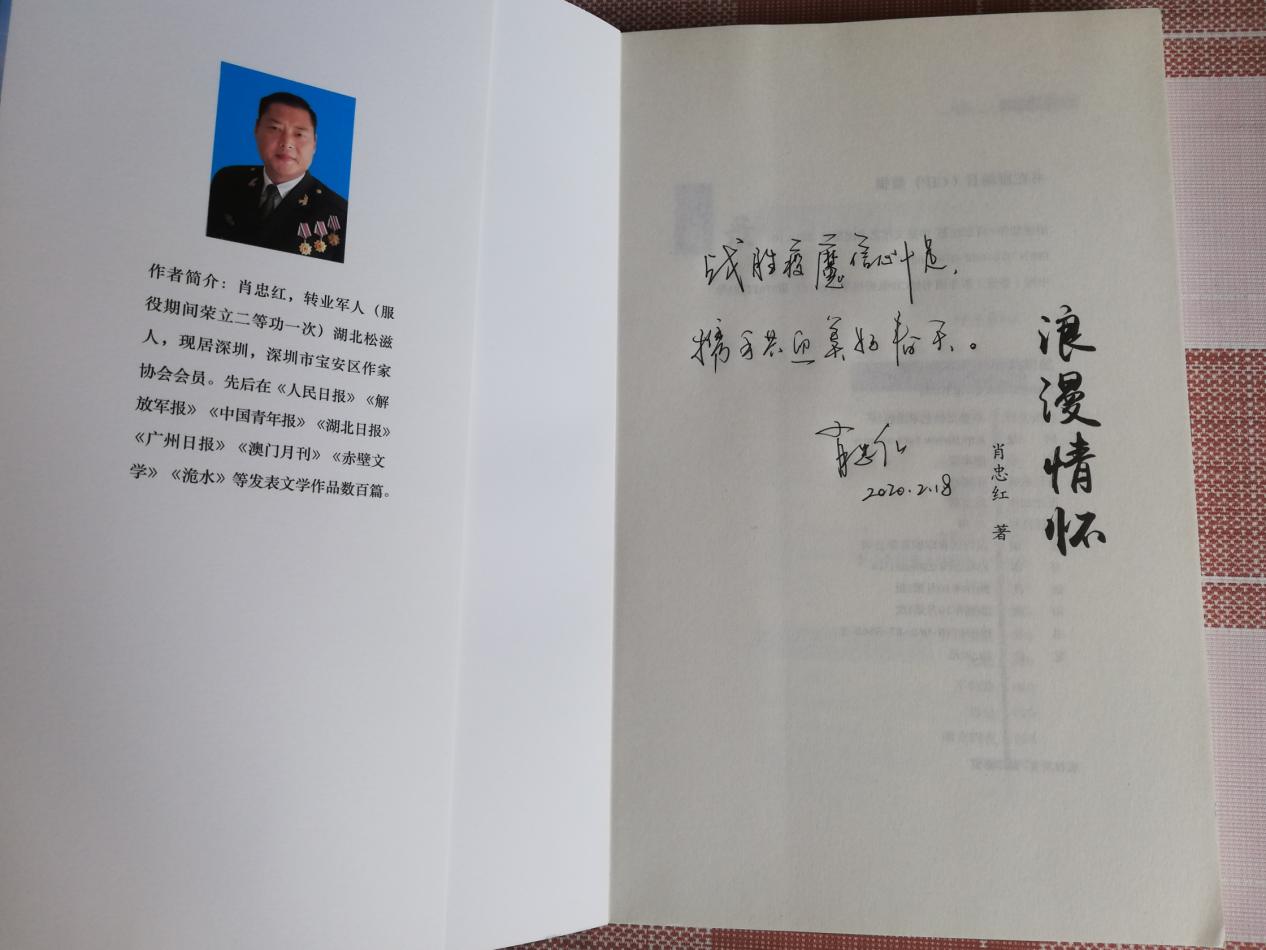 作者简介：肖忠红，转业军人（服
役期间荣立二等功一次）湖北松滋
人，现居深圳，深圳市宝安区作家
协会会员。先后在《人民日报》《解
放军报》《中国青年报》《湖北日报》
《广州日报》《澳门月刊》《赤壁文
学》《洈水》等发表文学作品数百篇。
战胜疫魔信心十足，
携手共迎美好春天。
肖忠红
2020.2.18
浪漫情怀
肖忠红 著